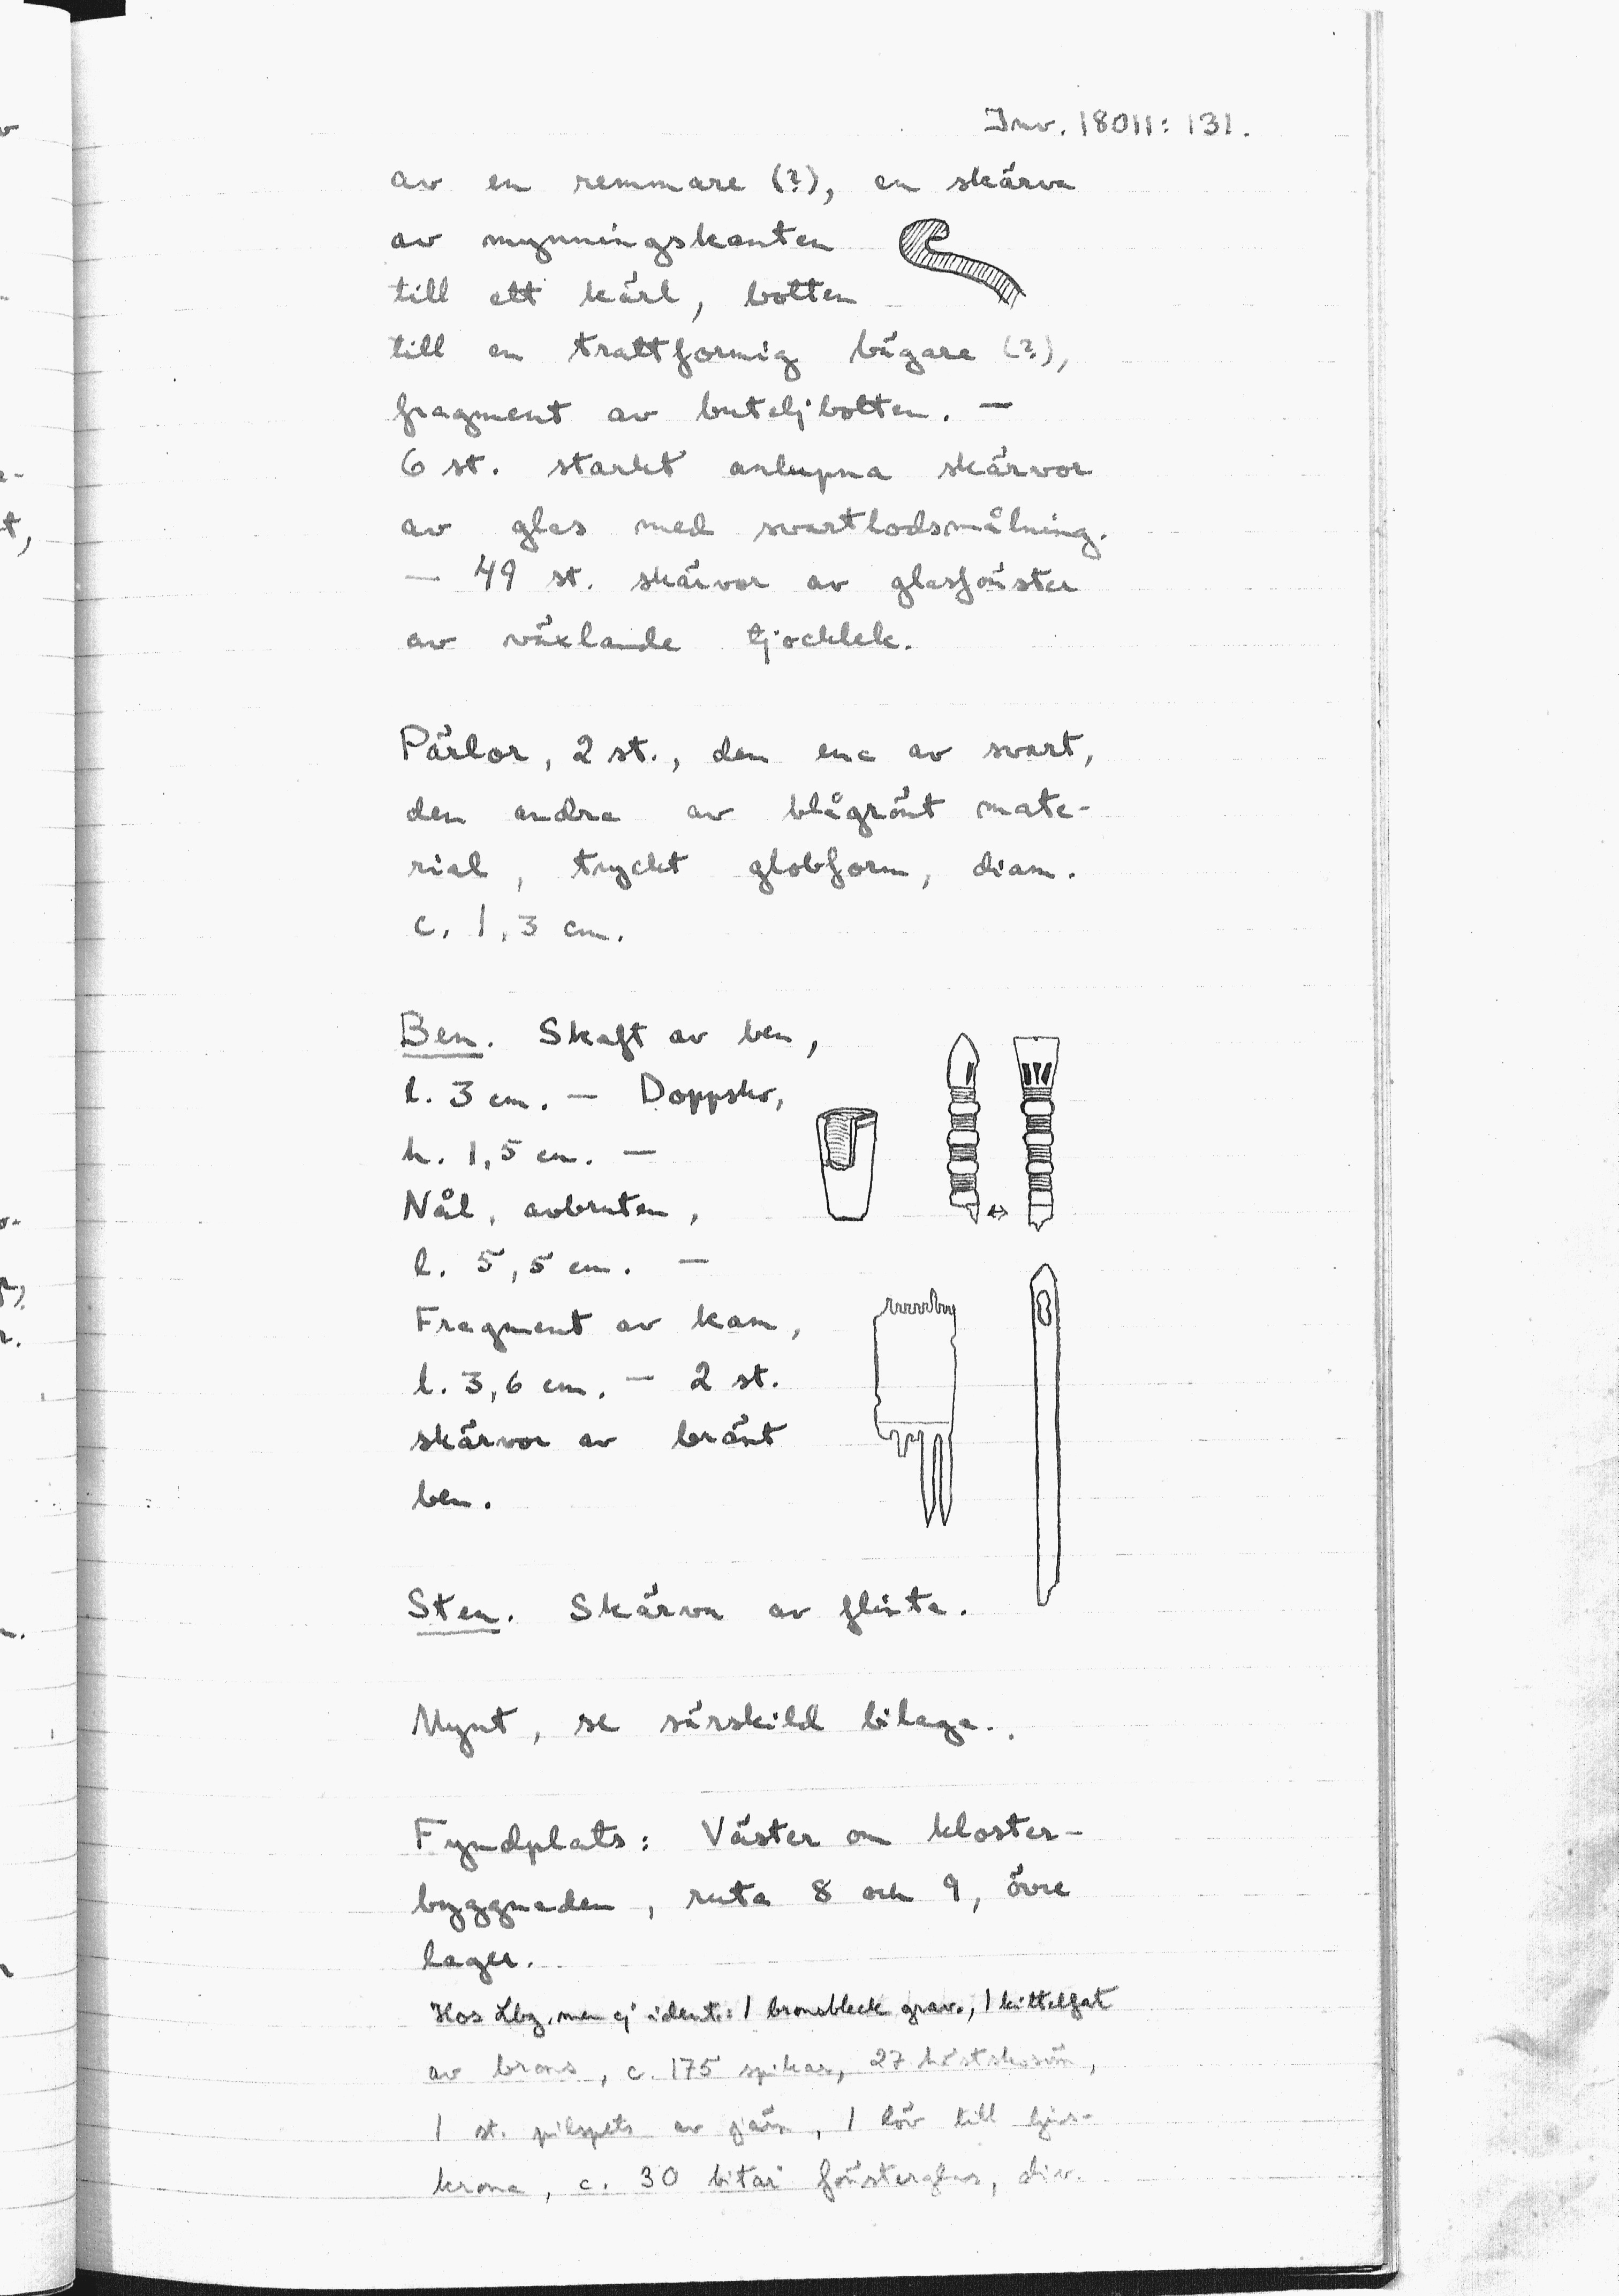 Inv. 18011: 131.
av en remmare (?), en skärva
av mynningskanten
till ett kärl, botten
till en trattformig bägare (?),
fragment av buteljbotten. —
6 st. starkt anlupna skärvor
av glas med svartlodsmålning.
— 49 st. skärvor av glasfönster
av växlande tjocklek.
Pärlor, 2 st., den ena av svart,
den andra av blågrönt mate-
rial, tryckt globform, diam.
c. 1,3 cm.
Ben. Skaft av ben,
l. 3 cm. — Doppsko,
h. 1,5 cm. —
Nål, avbruten,
l. 5,5 cm. —
Fragment av kam,
l. 3,6 cm. — 2 st.
skärvor av bränt
ben.
Sten. Skärva av flinta.
Mynt, se särskild bilaga.
Fyndplats: Väster om kloster-
byggnaden, ruta 8 och 9, övre
lager.
Hos Lbg, men ej ident.: 1 bronsbleck grav., 1 kittelfat
av brons, c. 175 spikar, 27 hästskosöm,
1 st. pilspets av järn, 1 löv till ljus-
krona, c. 30 bitar fönsterglas, div.